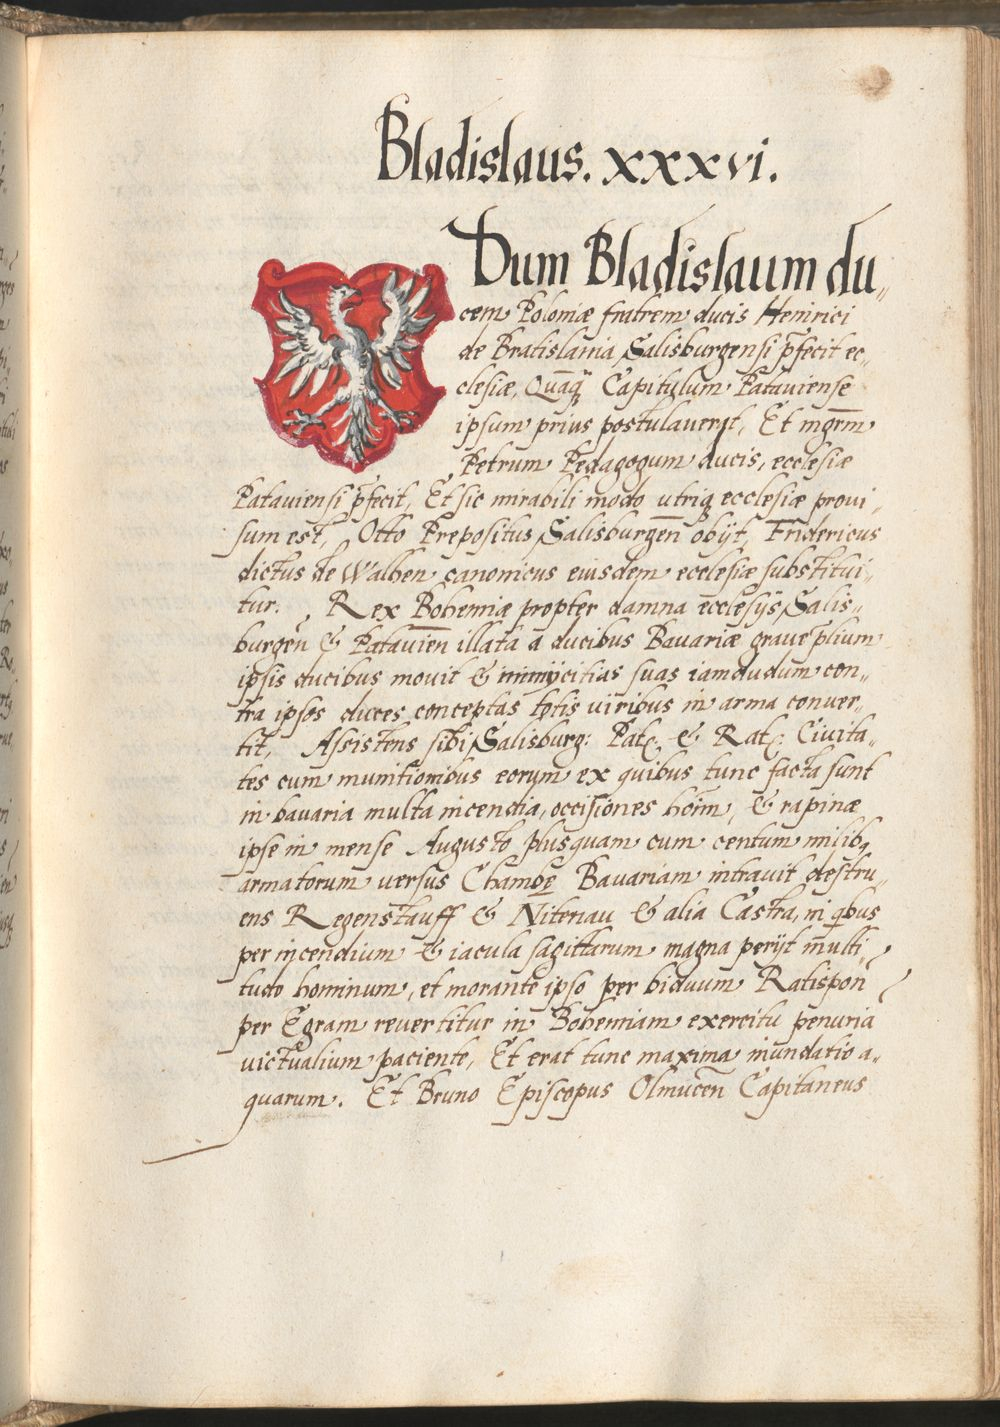 Bladislaus. xxxvi.
Dum Bladislaum du„
cem Poloniæ fratrem ducis Heinrici
de Bratislania Salisburgensi p̄fecit ec„
clesiæ, Quāq̄ Capitulum Pataviense
ipsum prius postulaverit, Et mgr̄m
Petrum Pedagogum ducis, ecclesiæ
Pataviensi p̄fecit, Et sic mirabili modo utriq; ecclesiæ provi„
sum est, Otto Prepositus Salisburgen̄ obijt, Fridericus
dictus de Walhen canonicus eiusdem ecclesiæ substitui„
tur. Rex Bohemiæ propter damna ecclesijs Salis„
burgen̄ & Patavien̄ illata a ducibus Bavariæ grave p̄lium
ipsis ducibus movit & inimijcitias suas iamdudum con„
tra ipsos duces conceptas totis viribus in arma conver„
tit, Assistens sibi Salisburg: Pat: & Rat: Civita„
tes cum munitionibus eorum ex quibus tunc facta sunt
in bavaria multa incendia, occisiones hōim, & rapinæ
ipse in mense Augusto plusquam cum centum milib9
armatorum versus Chambe Bavariam intravit destru„
ens Regenstauff & Nitenau & alia Castra, in q̄bus
per incendium & iacula sagittarum magna perijt multi„
tudo hominum, et morante ipso per biduum Ratispon̄
per Egram revertitur in Bohemiam exercitu penuria
victualium paciente, Et erat tunc maxima inundatio a„
quarum. Et Bruno Episcopus Olmucen̄ Capitaneus